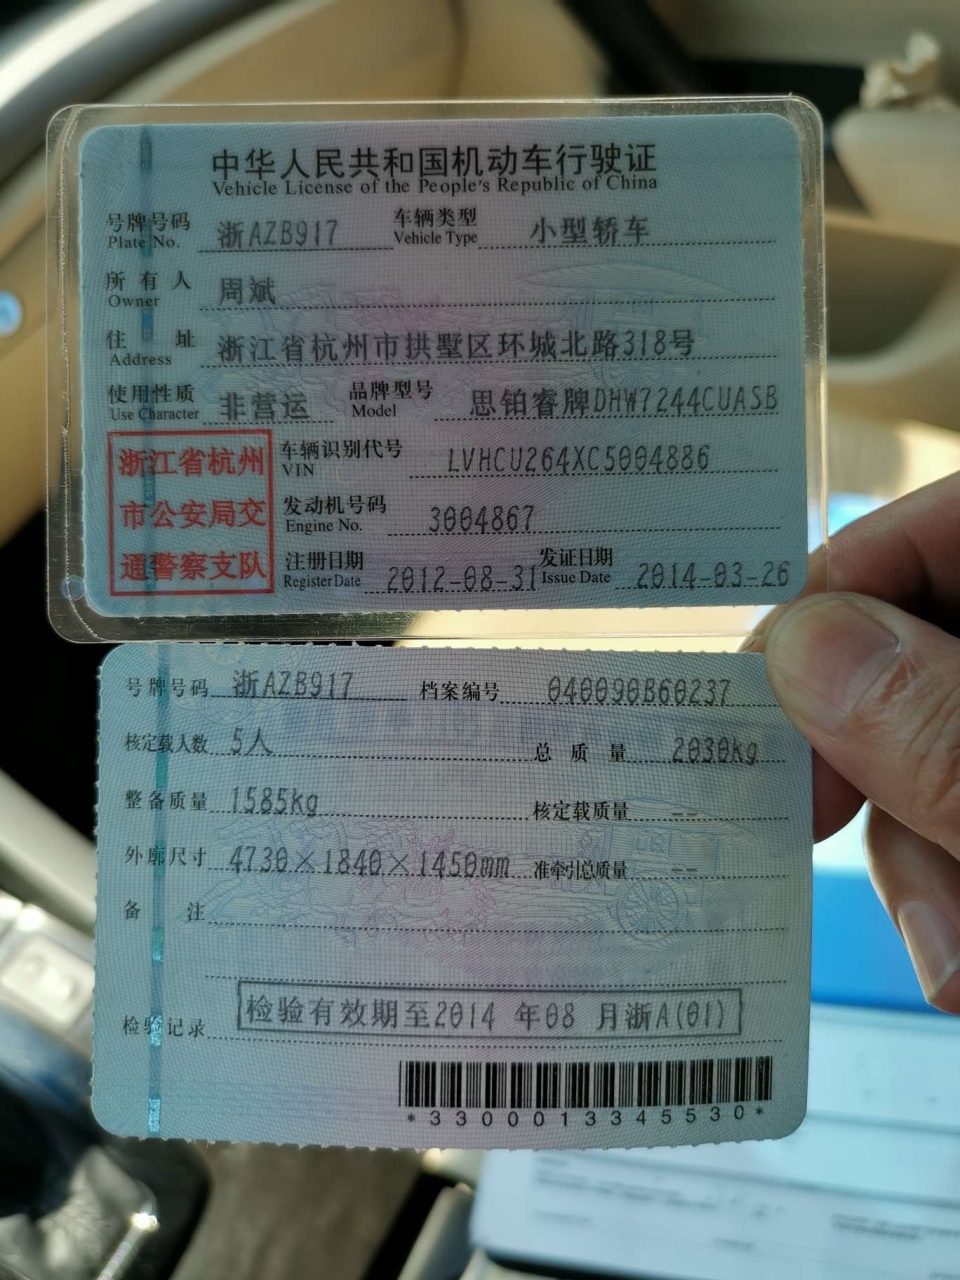 中华人民共和国机动车行驶证
Vehicle License of the People's Republic of China
号牌号码 浙AZB917 车辆类型 小型轿车
Plate No. Vehicle Type
所有人 周斌
Owner
住址 浙江省杭州市拱墅区环城北路318号
Address
使用性质 非营运 品牌型号 思铂睿牌DHW7244CUASB
Use Character Model
浙江省杭州
市公安局交
通警察支队
车辆识别代号 LVHCU264XC5004886
VIN
发动机号码 3004867
Engine No.
注册日期 2012-08-31 发证日期 2014-03-26
Register Date Issue Date
号牌号码 浙AZB917 档案编号 040090860237
核定载人数 5人 总质量 2030kg
整备质量 1585kg 核定载质量 --
外廓尺寸 4730×1840×1450mm 准牵引总质量 --
备注
检验记录 检验有效期至2014 年08 月浙A(01)
*3300013345530*